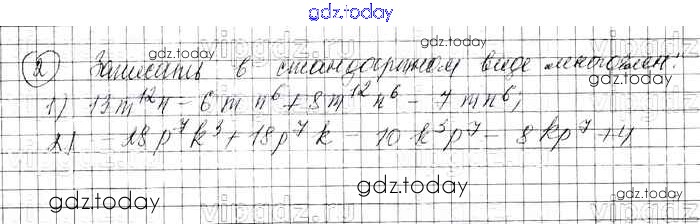 gdz.today
2) Записать в стандартном виде многочлен:
gdz.today
gdz.today
1) 13m¹²n - 6mn⁶ + 8m¹²n⁶ - 7mn⁶;
2) -28p⁷k³ + 18p⁷k - 10k³p⁷ - 8kp⁷ + 4
gdz.today
gdz.today
vipgdz.ru
gdz.today